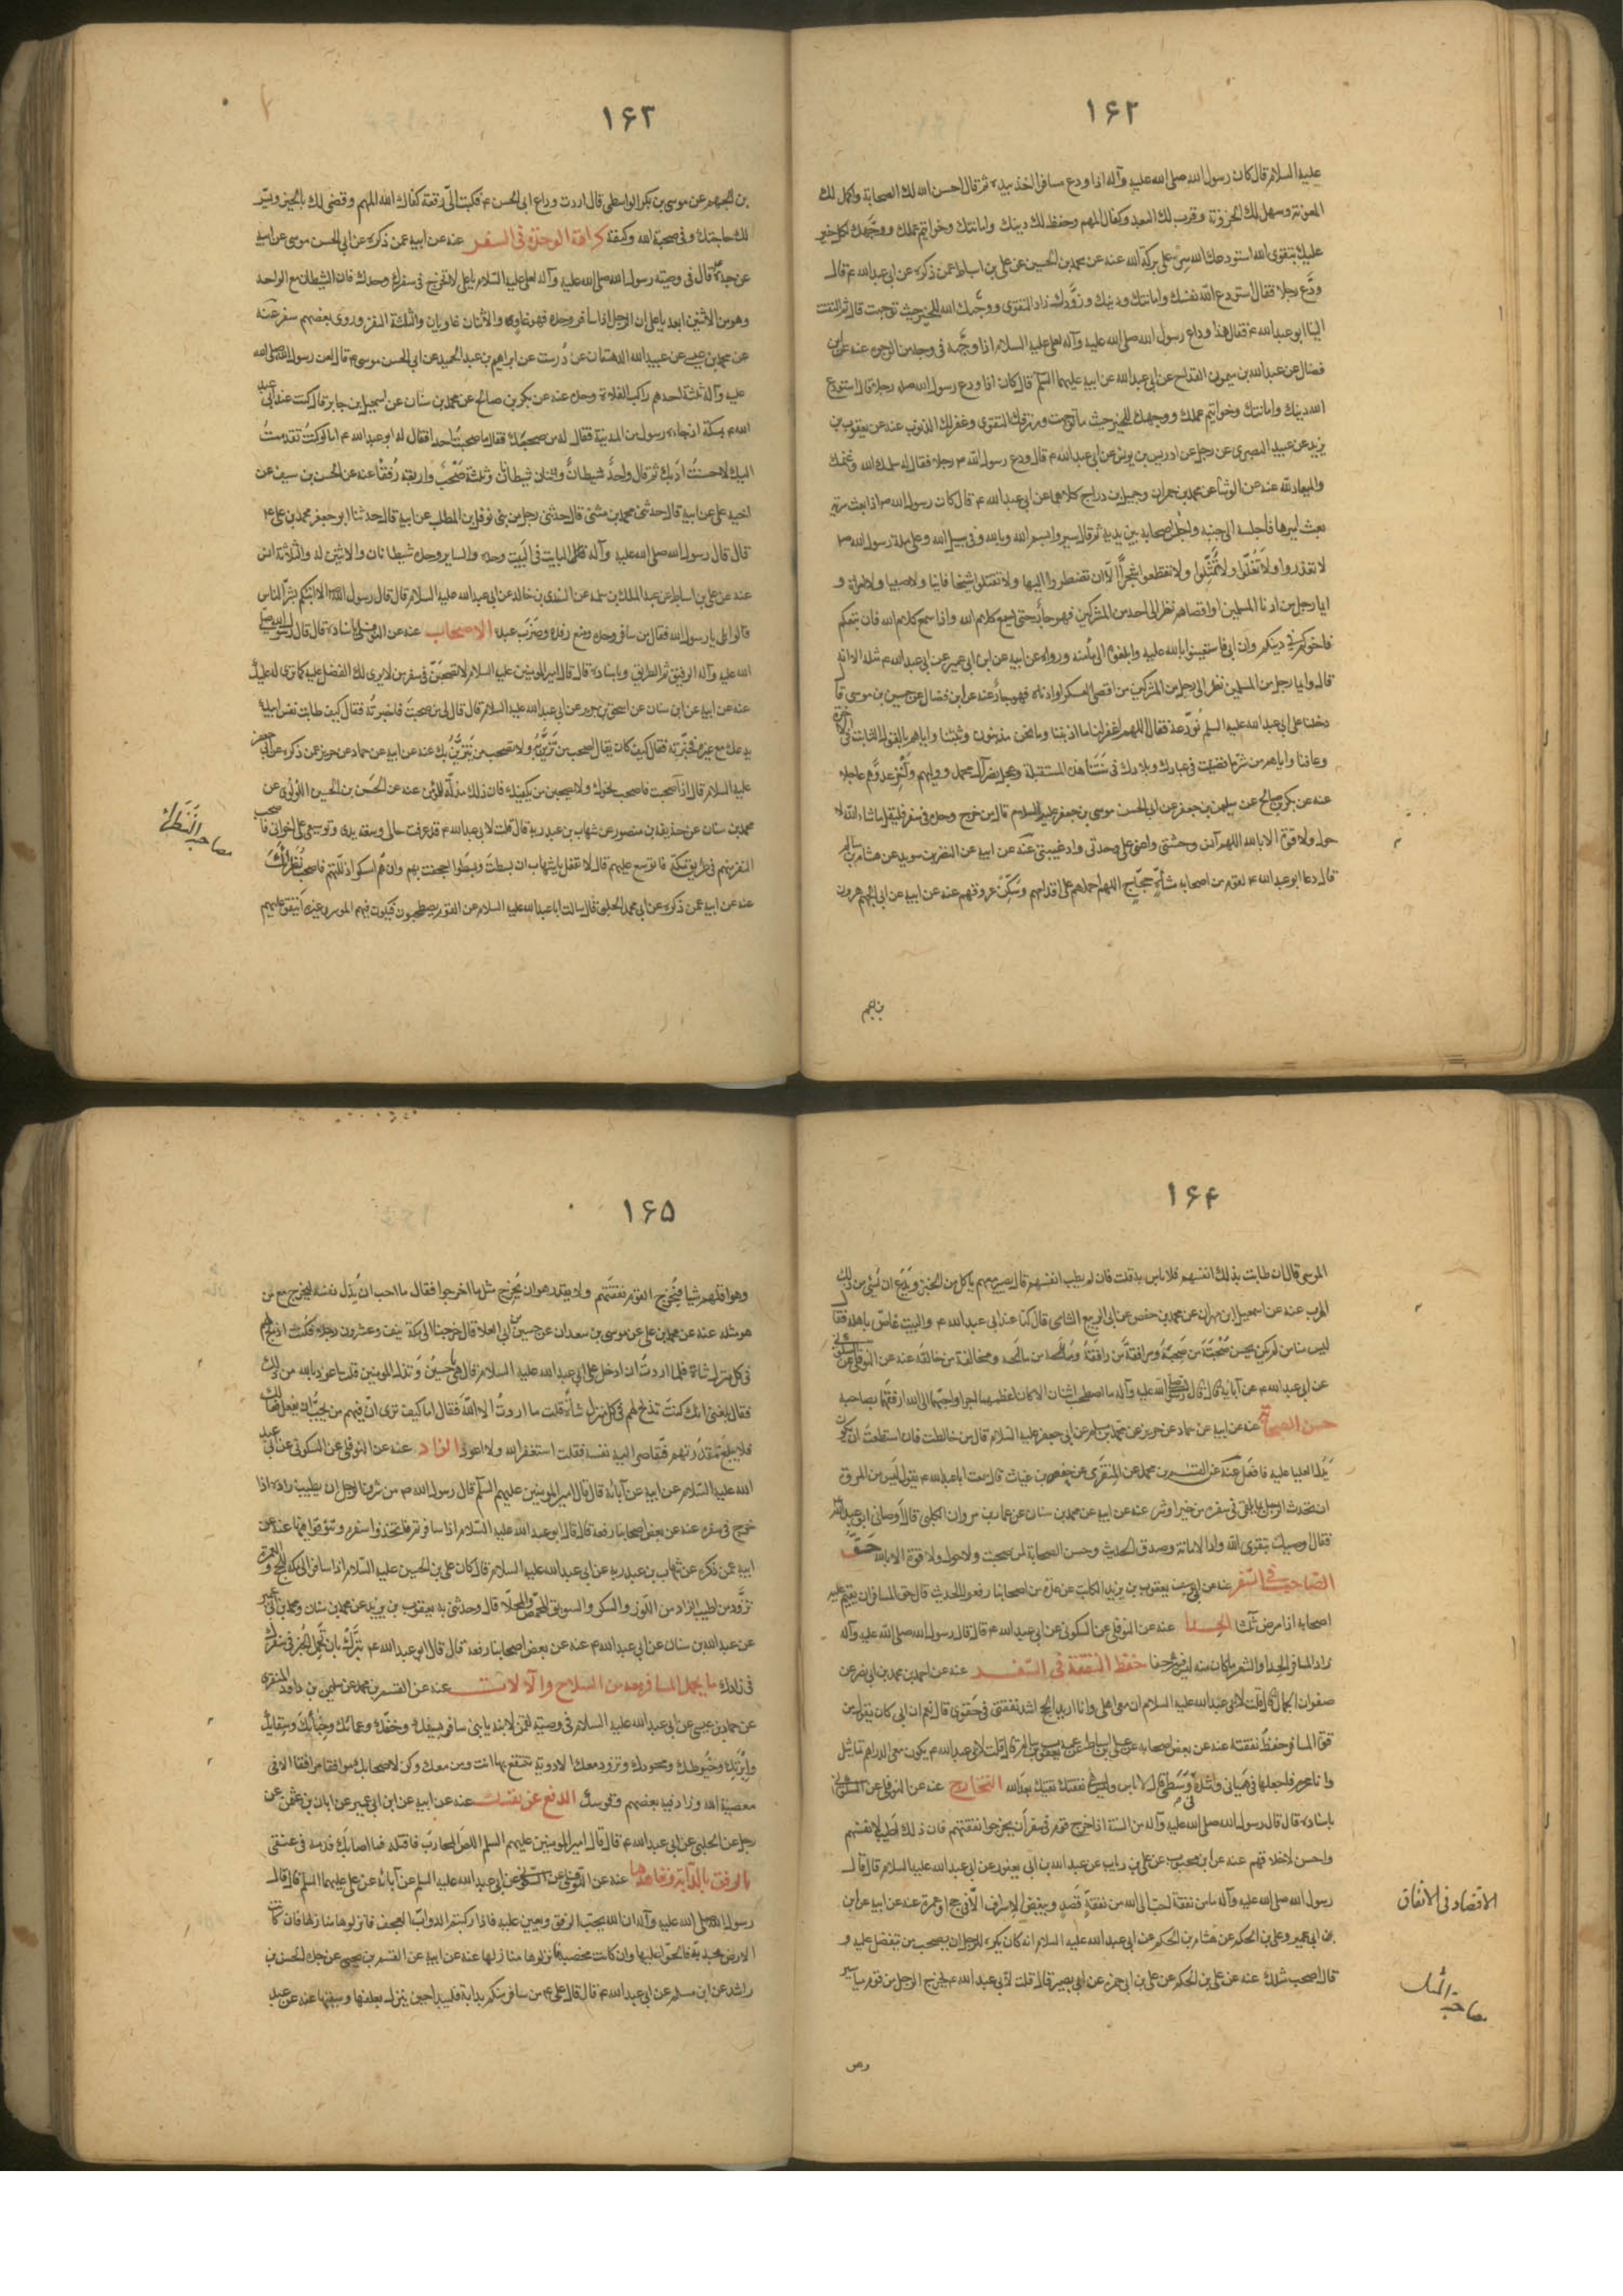 ۱۶۲
عليه السلام قال كان رسول الله صلى الله عليه وآله اذا ودع مسافرا اخذ بيده ثم قال احسن الله لك الصحابة واكمل لك
المعونة وسهل لك الحزونة وقرب لك البعيد وكفاك المهم وحفظ لك دينك وامانتك وخواتيم عملك ووجهك لكل خير
عليك بتقوى الله استودعك الله سر على بركة الله عنه عن محمد بن الحسين عن على بن اسباط عمن ذكره عن ابى عبد الله ع قال
ودع رجلا فقال استودع الله نفسك وامانتك ودينك وزودك زاد التقوى ووجهك الله للخير حيث توجهت قال ثم التفت
الينا ابو عبد الله ع فقال هذا وداع رسول الله صلى الله عليه وآله لعلى عليه السلام اذا وجهه فى وجه من الوجوه عنه عن ابن
فضال عن عبد الله بن ميمون القداح عن ابى عبد الله عن ابيه عليهما السلم قال كان اذا ودع رسول الله صله رجلا قال استودع
الله دينك وامانتك وخواتيم عملك ووجهك للخير حيث ما توجهت ورزقك التقوى وغفر لك الذنوب عنه عن يعقوب بن
يزيد عن عبيد البصرى عن رجل عن ادريس بن يونس عن ابى عبد الله ع قال ودع رسول الله ص رجلا فقال له سلمك الله وغنمك
والميعاد لله عنه عن الوشا عن محمد بن حمران وجميل بن دراج كلاهما عن ابى عبد الله ع قال كان رسول الله ص اذا بعث سرية
بعث اميرها فاجلسه الى جنبه واجلس اصحابه بين يديه ثم قال سيروا بسم الله وبالله وفى سبيل الله وعلى ملة رسول الله ص
لا تغدروا ولا تغلوا ولا تمثلوا ولا تقطعوا شجرا الا ان تضطروا اليها ولا تقتلوا شيخا فانيا ولا صبيا ولا امراة و
ايما رجل من ادنا المسلمين او اقصاهم نظر الى احد من المشركين فهو جار حتى يسمع كلام الله واذا سمع كلام الله فان تبعكم
فاخوكم فى دينكم وان ابى فاستعينوا بالله عليه وابلغوه الى مأمنه ورواه عن ابيه عن ابن ابى عمير عن ابى عبد الله ع مثله الا انه
قال وايما رجل من المسلمين نظر الى رجل من المشركين من اقصى العسكر او ادناه فهو جار عنه عن ابن فضال عن حسين بن موسى قا
دخلنا على ابى عبد الله عليه السلم نودعه فقال اللهم اغفر لنا ما اذنبنا وما نحن مذنبون وثبتنا واياهم بالقول الثابت فى الاخرة
وعافنا واياهم من شر ما قضيت فى عبادك وبلادك فى سنتنا هذه المستقبلة وعجل نصر آل محمد ووليهم واخز عدوهم عاجلا
عنه عن بكر بن صالح عن سليمن بن جعفر عن ابى الحسن موسى بن جعفر عليه السلام قال من خرج وحده فى سفر فليقل ما شاء الله لا
حول ولا قوة الا بالله اللهم آنس وحشتى واعنى على وحدتى واد غيبتى عنه عن ابيه عن النضر بن سويد عن هشام بن سالم
قال دعا ابو عبد الله ع لقوم من اصحابه مشاة حجاج اللهم احملهم على اقدامهم وسكن عروقهم عنه عن ابيه عن ابى الجهم هرون
بن الجهم
۱۶۳
بن الجهم عن موسى بن بكر الواسطى قال اردت وداع ابى الحسن ع فكتب الى رقعة كفاك الله المهم وقضى لك بالخير ويسر
لك حاجتك وفى صحبة الله وكنفه كراهة الوحدة فى السفر عنه عن ابيه عمن ذكره عن ابى الحسن موسى عن ابيه
عن جده قال فى وصية رسول الله صلى الله عليه وآله لعلى عليه السلام يا على لا تخرج فى سفر وحدك فان الشيطان مع الواحد
وهو من الاثنين ابعد يا على ان الرجل اذا سافر وحده فهو غاو والاثنان غاويان والثلثة النفر وروى بعضهم سفر عنه
عن محمد بن عيسى عن عبيد الله الدهقان عن درست عن ابراهيم بن عبد الحميد عن ابى الحسن موسى ع قال لعن رسول الله صلى الله
عليه وآله ثلثة احدهم راكب الفلاة وحده عنه عن بكر بن صالح عن محمد بن سنان عن اسمعيل بن جابر قال كنت عند ابى عبد
الله ع بمكة اذ جاءه رسول من المدينة فقال له من صحبك فقال ما صحبت احدا فقال له ابو عبد الله ع اما لو كنت تقدمت
اليك لاحسنت ادبك ثم قال واحد شيطان واثنان شيطانان وثلثة صحب واربعة رفقا عنه عن الحسن بن سيف عن
اخيه على عن ابيه قال حدثنى محمد بن مثنى قال حدثنى رجل من بنى نوفل بن المطلب عن ابيه قال حدثنا ابو جعفر محمد بن على ع
قال قال رسول الله صلى الله عليه وآله البايت فى البيت وحده والساير وحده شيطانان والاثنين لمة والثلاثة انس
عنه عن على بن اسباط عن عبد الملك بن سلمة عن السندى بن خالد عن ابى عبد الله عليه السلام قال قال رسول الله ص الا انبئكم بشر الناس
قالوا بلى يا رسول الله فقال من سافر وحده ومنع رفده وضرب عبده الاصحاب عنه عن النوفلى باسناده قال قال رسول الله صلى
الله عليه وآله الرفيق ثم الطريق وباسناده قال قال امير المومنين عليه السلام لا تصحبن فى سفر من لا يرى لك الفضل عليه كما ترى له عليك
عنه عن ابيه عن ابن سنان عن اسحق بن جرير عن ابى عبد الله عليه السلام قال قال لى من صحبت فاخبرته فقال كيف طابت نفس ابيك
يدعك مع غيره فخبرته فقال كيف كان يقال اصحب من تتزين به ولا تصحب من يتزين بك عنه عن ابيه عن حماد عن حريز عمن ذكره عن ابى جعفر
عليه السلام قال اذا صحبت فاصحب نحوك ولا تصحبن من يكفيك فان ذلك مذلة للمومن عنه عن الحسن بن الحسين اللولوى عن
محمد بن سنان عن حذيفة بن منصور عن شهاب بن عبد ربه قال قلت لابى عبد الله ع قد عرفت حالى وسعة يدى وتوسعى على اخوانى فاصحب
النفر منهم فى طريق مكة فاتوسع عليهم قال لا تفعل يا شهاب ان بسطت وبسطوا اجحفت بهم وان هم امسكوا اذللتهم فاصحب نظراءك
عنه عن ابيه عمن ذكره عن ابى محمد الحلبى قال سالت ابا عبد الله عليه السلام عن القوم يصطحبون فيكون فيهم الموسر وغيره اينفق عليهم
مصاحبة النظراء
۱۶۴
الموسر قال ان طابت بذلك انفسهم فلا باس به قلت فان لم يطب انفسهم قال يصير معهم ياكل من الخبز ويدع ان يستثنى من ذلك
الهرب عنه عن اسمعيل بن مهران عن محمد بن حفص عن ابى الربيع الشامى قال كنا عند ابى عبد الله ع والبيت غاص باهله فقال
ليس منا من لم يكن يحسن صحبة من صحبه ومرافقة من رافقه وممالحة من مالحه ومخالقة من خالقه عنه عن النوفلى عن السكونى
عن ابى عبد الله ع عن آبائه قال قال رسول الله صلى الله عليه وآله ما اصطحب اثنان الا كان اعظمهما اجرا واحبهما الى الله ارفقهما بصاحبه
حسن الصحابة عنه عن ابيه عن حماد عن حريز عن محمد بن مسلم عن ابى جعفر عليه السلام قال من خالطت فان استطعت ان يكون
يدك العليا عليه فافعل عنه عن القسم بن محمد عن المنقرى عن حفص بن غياث قال سمعت ابا عبد الله ع يقول ليس من المروة
ان يحدث الرجل بما يلقى فى سفره من خير او شر عنه عن ابيه عن محمد بن سنان عن عمار بن مروان الكلبى قال اوصانى ابو عبد الله
فقال اوصيك بتقوى الله واداء الامانة وصدق الحديث وحسن الصحابة لمن صحبت ولا حول ولا قوة الا بالله حق
الصاحب فى السفر عنه عن ابى يوسف يعقوب بن يزيد الكاتب عن عدة من اصحابنا رفعوا الحديث قال حق المسافر ان يقيم عليه
اصحابه اذا مرض ثلثا الحدا عنه عن النوفلى عن السكونى عن ابى عبد الله ع قال قال رسول الله صلى الله عليه وآله
زاد المسافر الحدا والشعر ما كان منه ليس فيه خنا حفظ النفقة فى السفر عنه عن احمد بن محمد بن ابى نصر عن
صفوان الجمال قال قلت لابى عبد الله عليه السلام ان معى اهلى وانا اريد الحج اشد نفقتى فى حقوى قال نعم ان ابى كان يقول من
قوة المسافر حفظ نفقته عنه عن بعض اصحابه عن على بن اسباط عن عمه يعقوب بن سالم قال قلت لابى عبد الله ع يكون معى الدراهم فيها تماثيل
وانا محرم فاجعلها فى هميانى واشده فى وسطى قال لا باس وليس هى نفقتك نفقتك بعد الله التخارج عنه عن النوفلى عن السكونى
باسناده قال قال رسول الله صلى الله عليه وآله من السنة اذا خرج قوم فى سفر ان يخرجوا نفقتهم فان ذلك اطيب لانفسهم
واحسن لاخلاقهم عنه عن ابن محبوب عن على بن رياب عن عبد الله بن ابى يعفور عن ابى عبد الله عليه السلام قال قال
رسول الله صلى الله عليه وآله ما من نفقة احب الى الله من نفقة قصد ويبغض الاسراف الا فى حج او عمرة عنه عن ابيه عن ابن
بن ابى عمير وعلى بن الحكم عن هشام بن الحكم عن ابى عبد الله عليه السلام انه كان يكره للرجل ان يصحب من يتفضل عليه و
قال اصحب مثلك عنه عن على بن الحكم عن على بن ابى حمزة عن ابى بصير قال قلت لابى عبد الله ع يخرج الرجل مع قوم مياسير
الاقتصاد فى الانفاق
مصاحبة المثل
وهو
۱۶۵
وهو اقلهم شيا فيخرج القوم نفقتهم ولا يقدر هو ان يخرج مثل ما اخرجوا فقال ما احب ان يذل نفسه ليخرج مع من
هو مثله عنه عن محمد بن على عن موسى بن سعدان عن حسين بن ابى العلا قال خرجنا الى مكة نيف وعشرون رجلا فكنت اذبح لهم
فى كل منزل شاة فلما اردت ان ادخل على ابى عبد الله عليه السلام قال يا حسين وتذل المومنين قلت اعوذ بالله من ذلك
فقال بلغنى انك كنت تذبح لهم فى كل منزل شاة قلت ما اردت الا الله فقال اما كنت ترى ان فيهم من يحب ان يفعل فعالك
فلا يبلغ مقدرتهم فيتقاصر اليه نفسه فقلت استغفر الله ولا اعود الزاد عنه عن النوفلى عن السكونى عن ابى عبد
الله عليه السلام عن ابيه عن آبائه قال قال امير المومنين عليهم السلم قال رسول الله ص من شرف الرجل ان يطيب زاده اذا
خرج فى سفره عنه عن بعض اصحابنا رفعه قال قال ابو عبد الله عليه السلام اذا سافرتم فاتخذوا سفرة وتنوقوا فيها عنه عن
ابيه عمن ذكره عن شهاب بن عبد ربه عن ابى عبد الله عليه السلام قال كان على بن الحسين عليه السلام اذا سافر الى مكة للحج والعمرة
تزود من اطيب الزاد من اللوز والسكر والسويق المحمص والمحلا قال وحدثنى به يعقوب بن يزيد عن محمد بن سنان ومحمد بن ابى عمير
عن عبد الله بن سنان عن ابى عبد الله ع عنه عن بعض اصحابنا رفعه قال قال ابو عبد الله ع تبرك بان تحمل الخبز فى سفرك
فى زادك ما يحمل المسافر معه من السلاح والآلات عنه عن القسم بن محمد عن سليمن بن داود المنقرى
عن حماد بن عيسى عن ابى عبد الله عليه السلام فى وصية لقمن لابنه يا بنى سافر بسيفك وخفك وعمامتك وخبائك وسقائك
وابرتك وخيوطك ومخرزك وتزود معك الادوية تنتفع بها انت ومن معك وكن لاصحابك موافقا مرافقا الا فى
معصية الله وزاد فيه بعضهم وقوسك الدفع عن نفسك عنه عن ابيه عن ابن ابى عمير عن ابان بن عثمن عن
رجل عن الحلبى عن ابى عبد الله ع قال قال امير المومنين عليهم السلم اللص المحارب فاقتله فما اصابك فدمه فى عنقى
الرفق بالدابة وتعاهدها عنه عن النوفلى عن السكونى عن ابى عبد الله عليه السلم عن آبائه عن على عليهما السلم قال قال
رسول الله صلى الله عليه وآله ان الله يحب الرفق ويعين عليه فاذا ركبتم الدواب العجف فانزلوها منازلها فان كانت
الارض مجدبة فانجوا عليها وان كانت مخصبة فانزلوها منازلها عنه عن ابيه عن القسم بن يحيى عن جده الحسن بن
راشد عن ابن مسلم عن ابى عبد الله ع قال قال على ع من سافر منكم بدابة فليبدأ حين ينزل بعلفها وسقيها عنه عن عبد